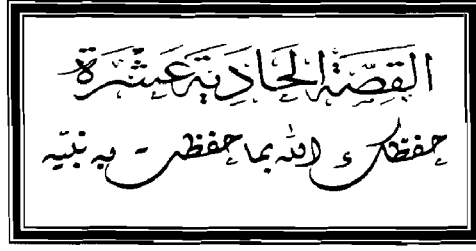 القِصَّة الحَادِيَة عَشْرَة
حفظك الله بما حفظت به نبيّه